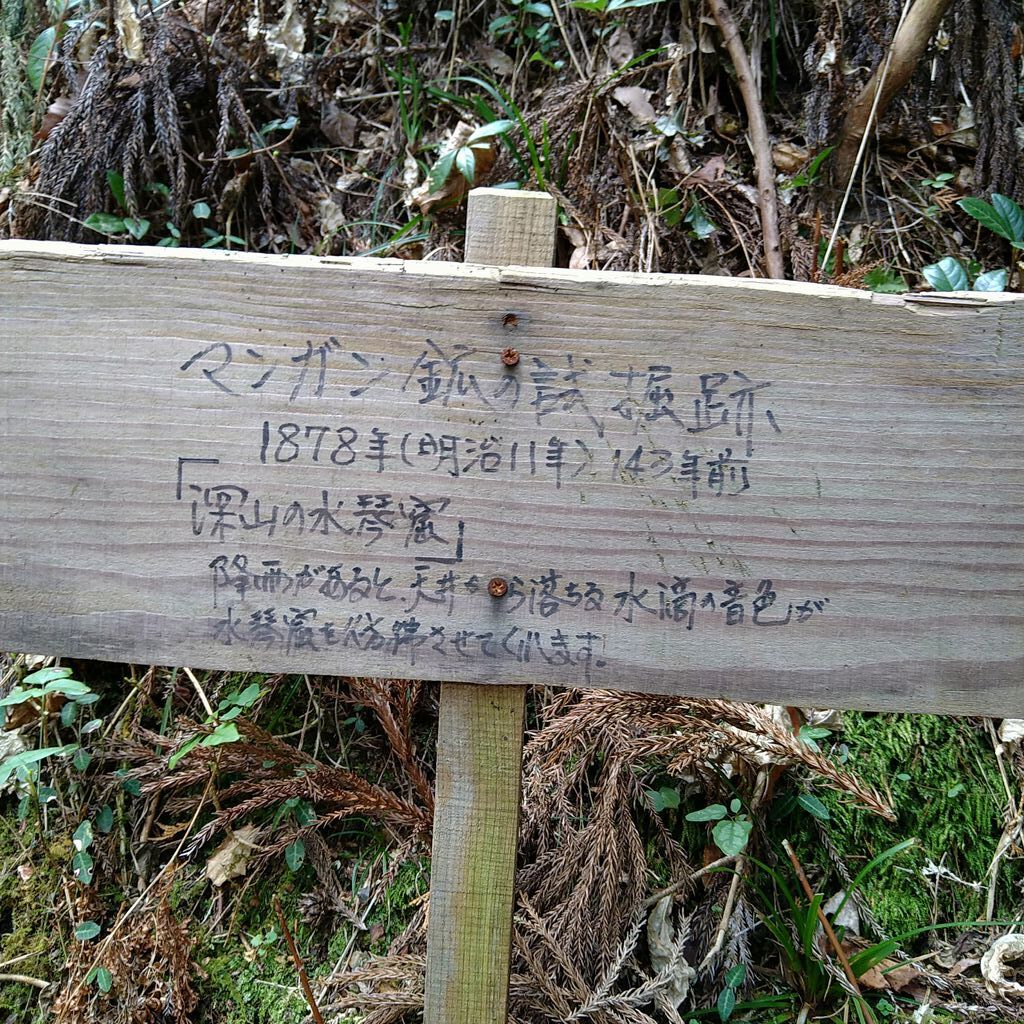 マンガン鉱の試掘跡
1878年(明治11年) 143年前
「深山の水琴窟」
降雨があると、天井から落ちる水滴の音色が
水琴窟を彷彿させてくれます。